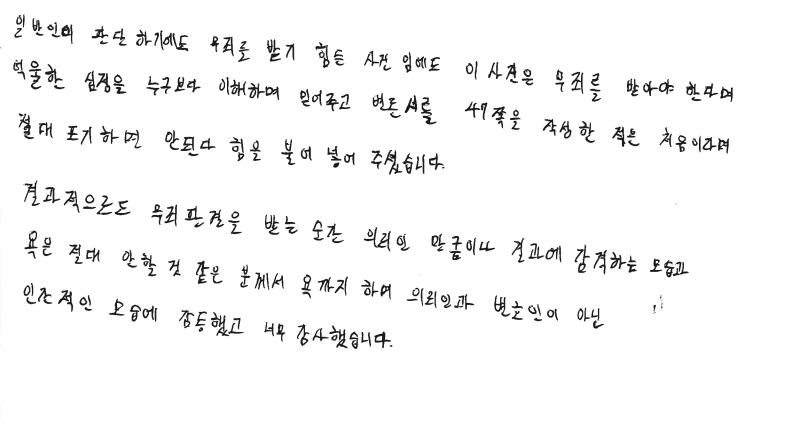 일반인이 판단하기에도 무죄를 받기 힘든 사건 임에도 이 사건은 무죄를 받아야 한다며
억울한 심정을 누구보다 이해하며 믿어주고 변론서를 47쪽을 작성한 적은 처음이라며
절대 포기하면 안된다 힘을 불어 넣어 주셨습니다.
결과적으로도 무죄판결을 받는 순간 의뢰인 만큼이나 결과에 감격하는 모습과
욕은 절대 안할 것 같은 분께서 욕까지 하며 의뢰인과 변호인이 아닌
인간적인 모습에 감동했고 너무 감사했습니다.